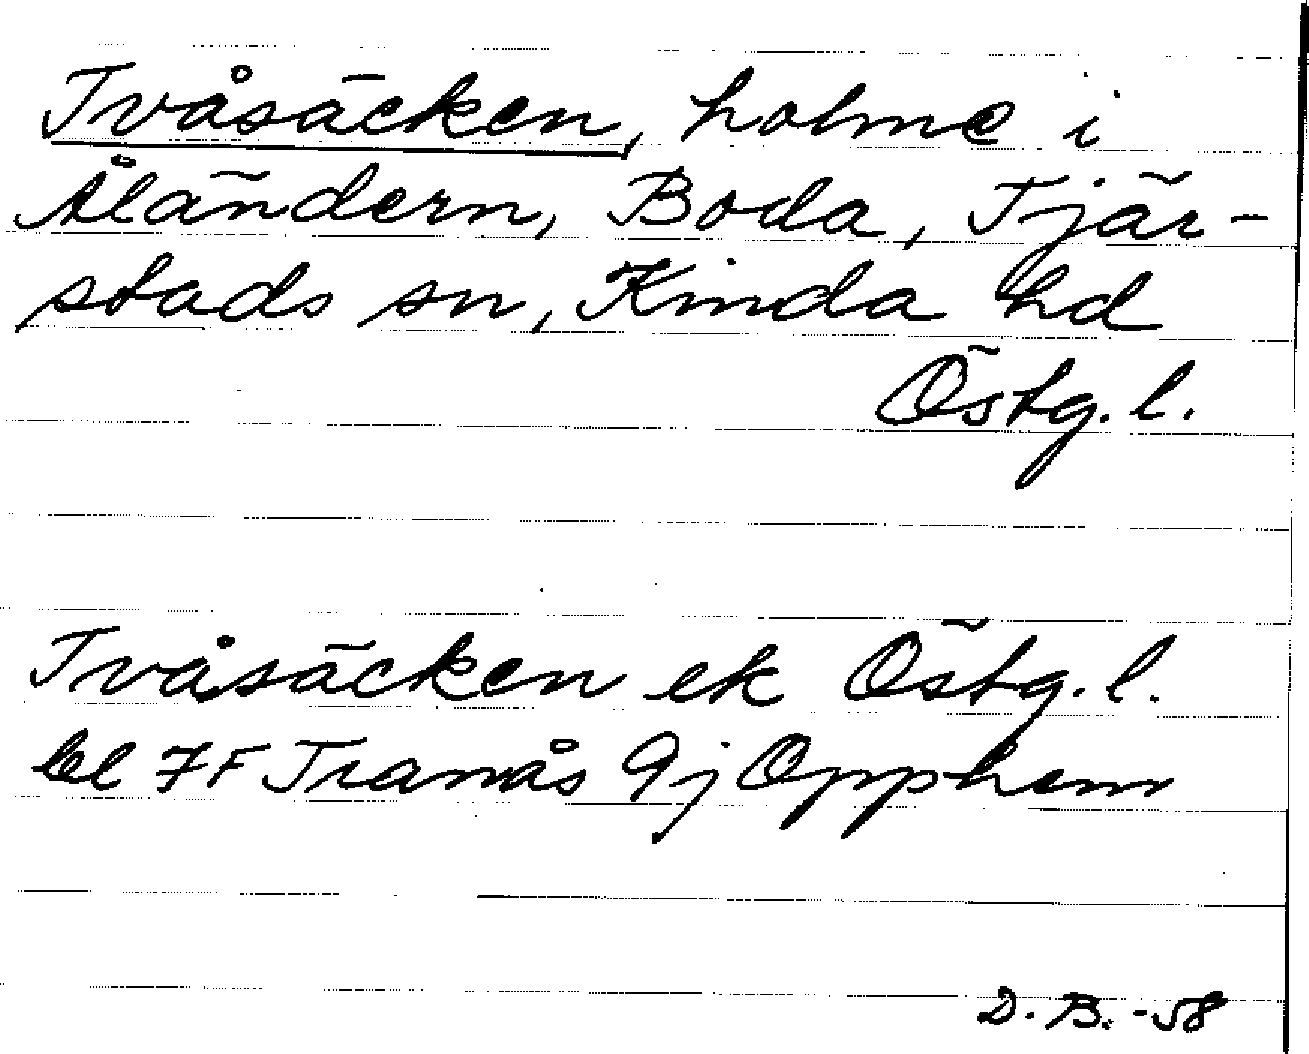 Tvåsäcken, holme i
Åländern, Boda, Tjär-
stads sn, Kinda hd
Östg. l.
Tvåsäcken ek Östg. l.
bl 7F Tranås 9j Opphem
D. B. -58